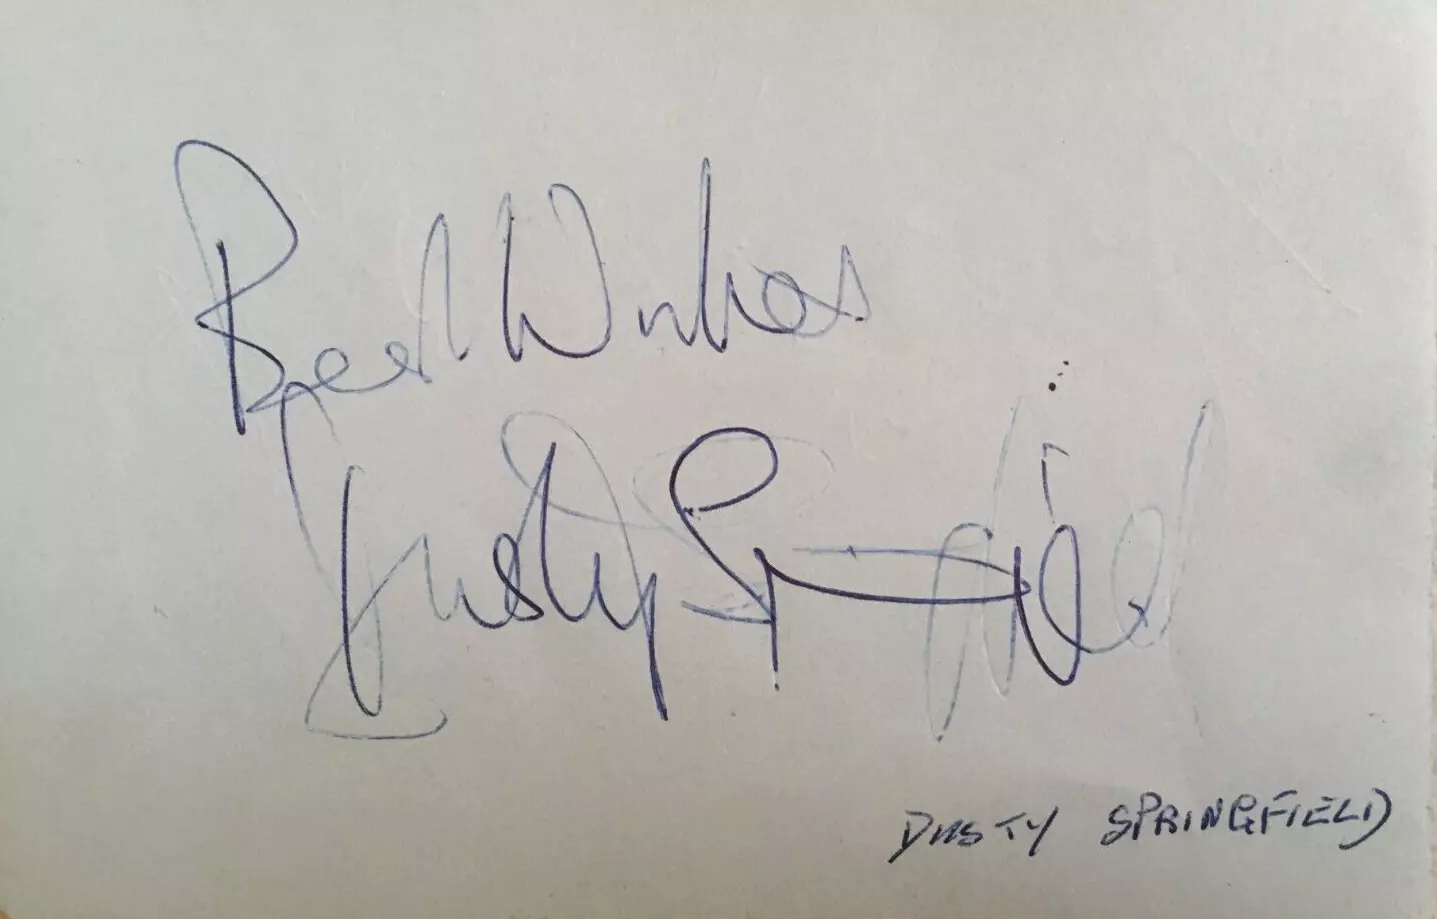 Best Wishes
Dusty Springfield
DUSTY SPRINGFIELD